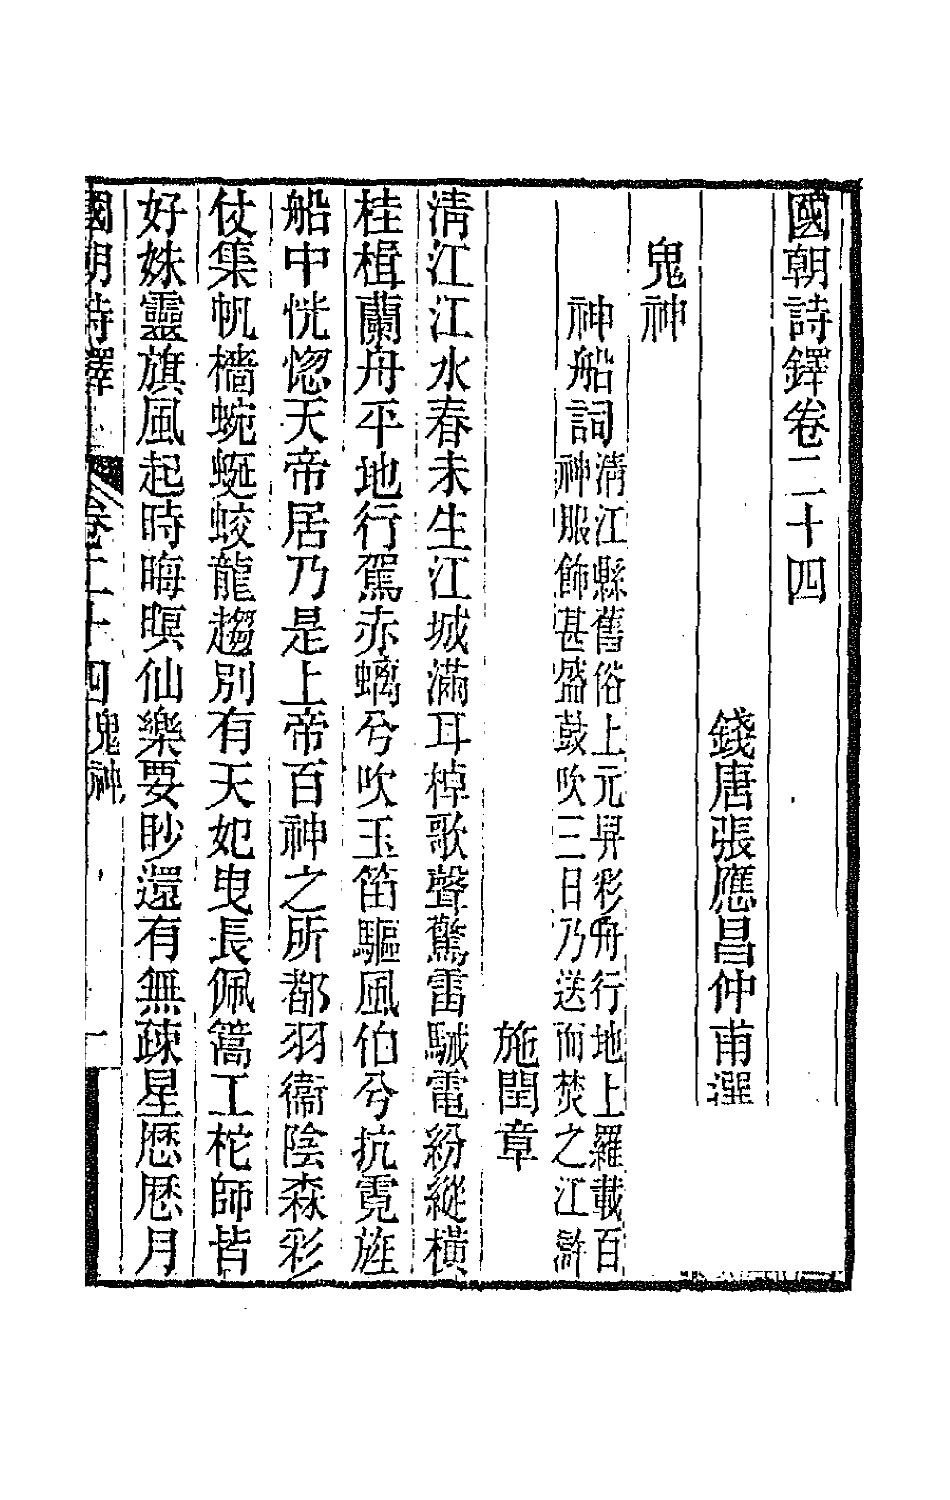 國朝詩鐸卷二十四
錢唐張應昌仲甫選
鬼神
神船詞
清江縣舊俗上元舁彩舟行地上羅載百
神服飾甚盛鼓吹三日乃送而焚之江滸
施閏章
清江江水春未生江城滿耳棹歌聲驚雷駴電紛縱橫
桂楫蘭舟平地行駕赤螭兮吹玉笛驅風伯兮抗霓旌
船中恍惚天帝居乃是上帝百神之所都羽衞陰森彩
仗集帆檣蜿蜒蛟龍趨別有天妃曳長佩篙工柁師皆
好姝靈旗風起時晦暝仙樂要眇還有無疎星歷歷月
國朝詩鐸
卷二十四鬼神
一